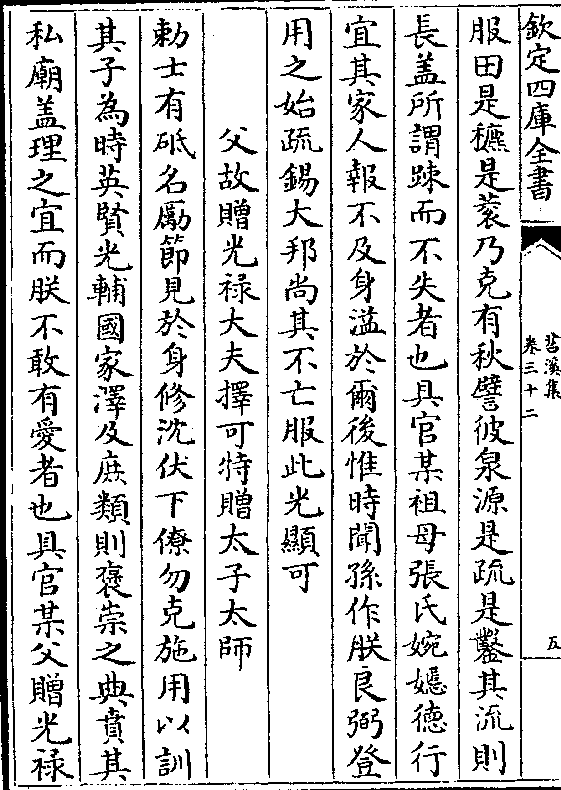 欽定四庫全書
苕溪集
卷三十二
五
服田是穮是蓘乃克有秋譬彼泉源是疏是鑿其流則
長盖所謂踈而不失者也具官某祖母張氏婉嫕德行
宜其家人報不及身溢於爾後惟時聞孫作朕良弼登
用之始疏錫大邦尚其不亡服此光顯可
父故贈光禄大夫擇可特贈太子太師
勅士有砥名勵節見於身修沈伏下僚勿克施用以訓
其子為時英賢光輔國家澤及庶類則褒崇之典賁其
私廟盖理之宜而朕不敢有愛者也具官某父贈光禄